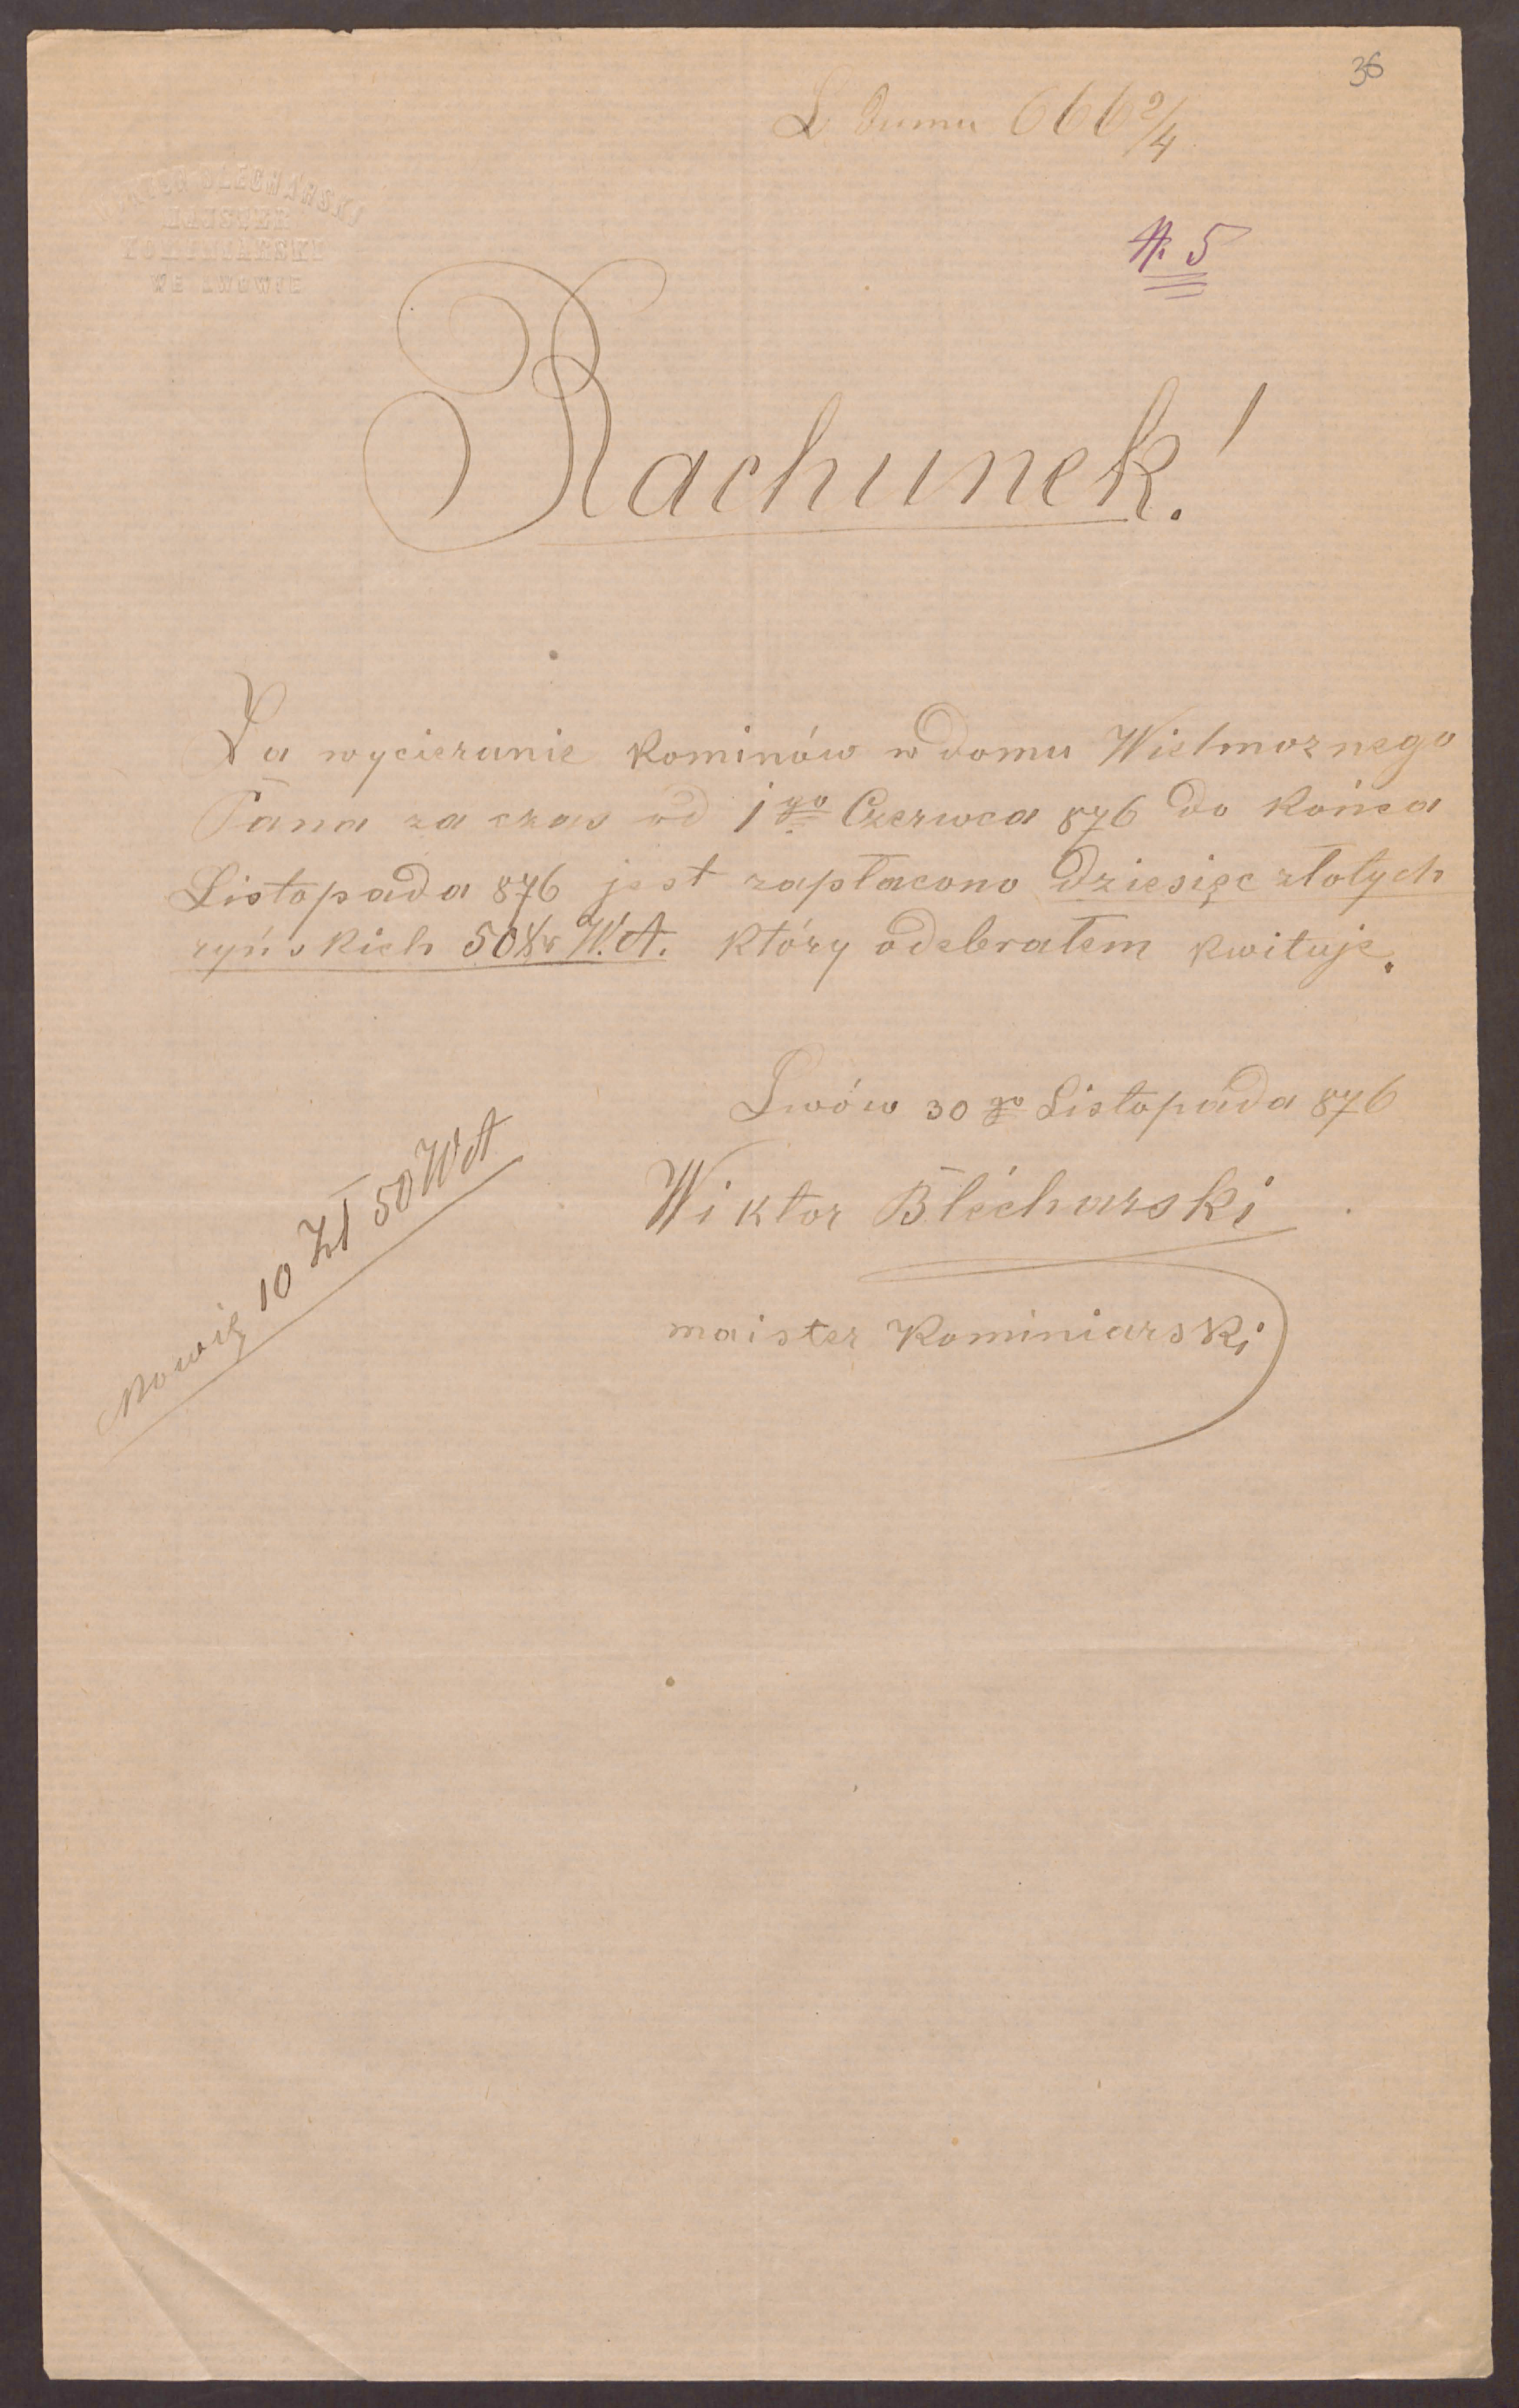 36
L domu 666 2/4
WIKTOR BLECHARSKI
MAJSTER
KOMINIARSKI
WE LWOWIE
N. 5
Rachunek!
Za wycieranie kominów w domu Wielmoznego
Pana za czas od 1go Czerwca 876 do końca
Listopada 876 jest zapłacono dziesięc złotych
ryńskich 50 Xr W.A. który odebrałem kwituje.
Lwów 30go Listopada 876
Wiktor Blécharski
maister Kominiarski
Mowię 10 Zł 50 WA